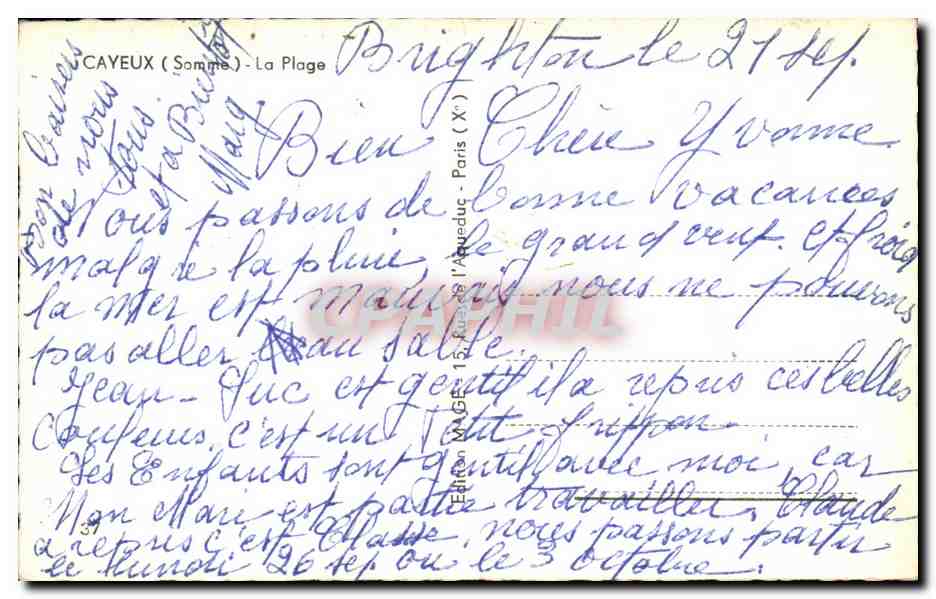 CAYEUX (Somme) - La Plage
Brighton le 21 sep.
Bien Chère Yvonne
Nous passons de bonne vacances
malgre la pluie le grand vent. et froid
la mer est mauvais nous ne pouvons
pas aller au sable.
Jean-Luc est gentil il a repris ces belles
Couleurs, c'est un Petit fripon
Les Enfants sont gentil, avec moi, car
Mon Mari est partie travailler, Claude
a repris c'est Classe, nous passons partir
le Lundi 26 sep ou le 3 octobre.
Bon baisers
de nous
tous.
et a Bientôt
Marg
Edition MAGE - 15, Rue de l'Aqueduc - Paris (X°)
39
CPAPHIL